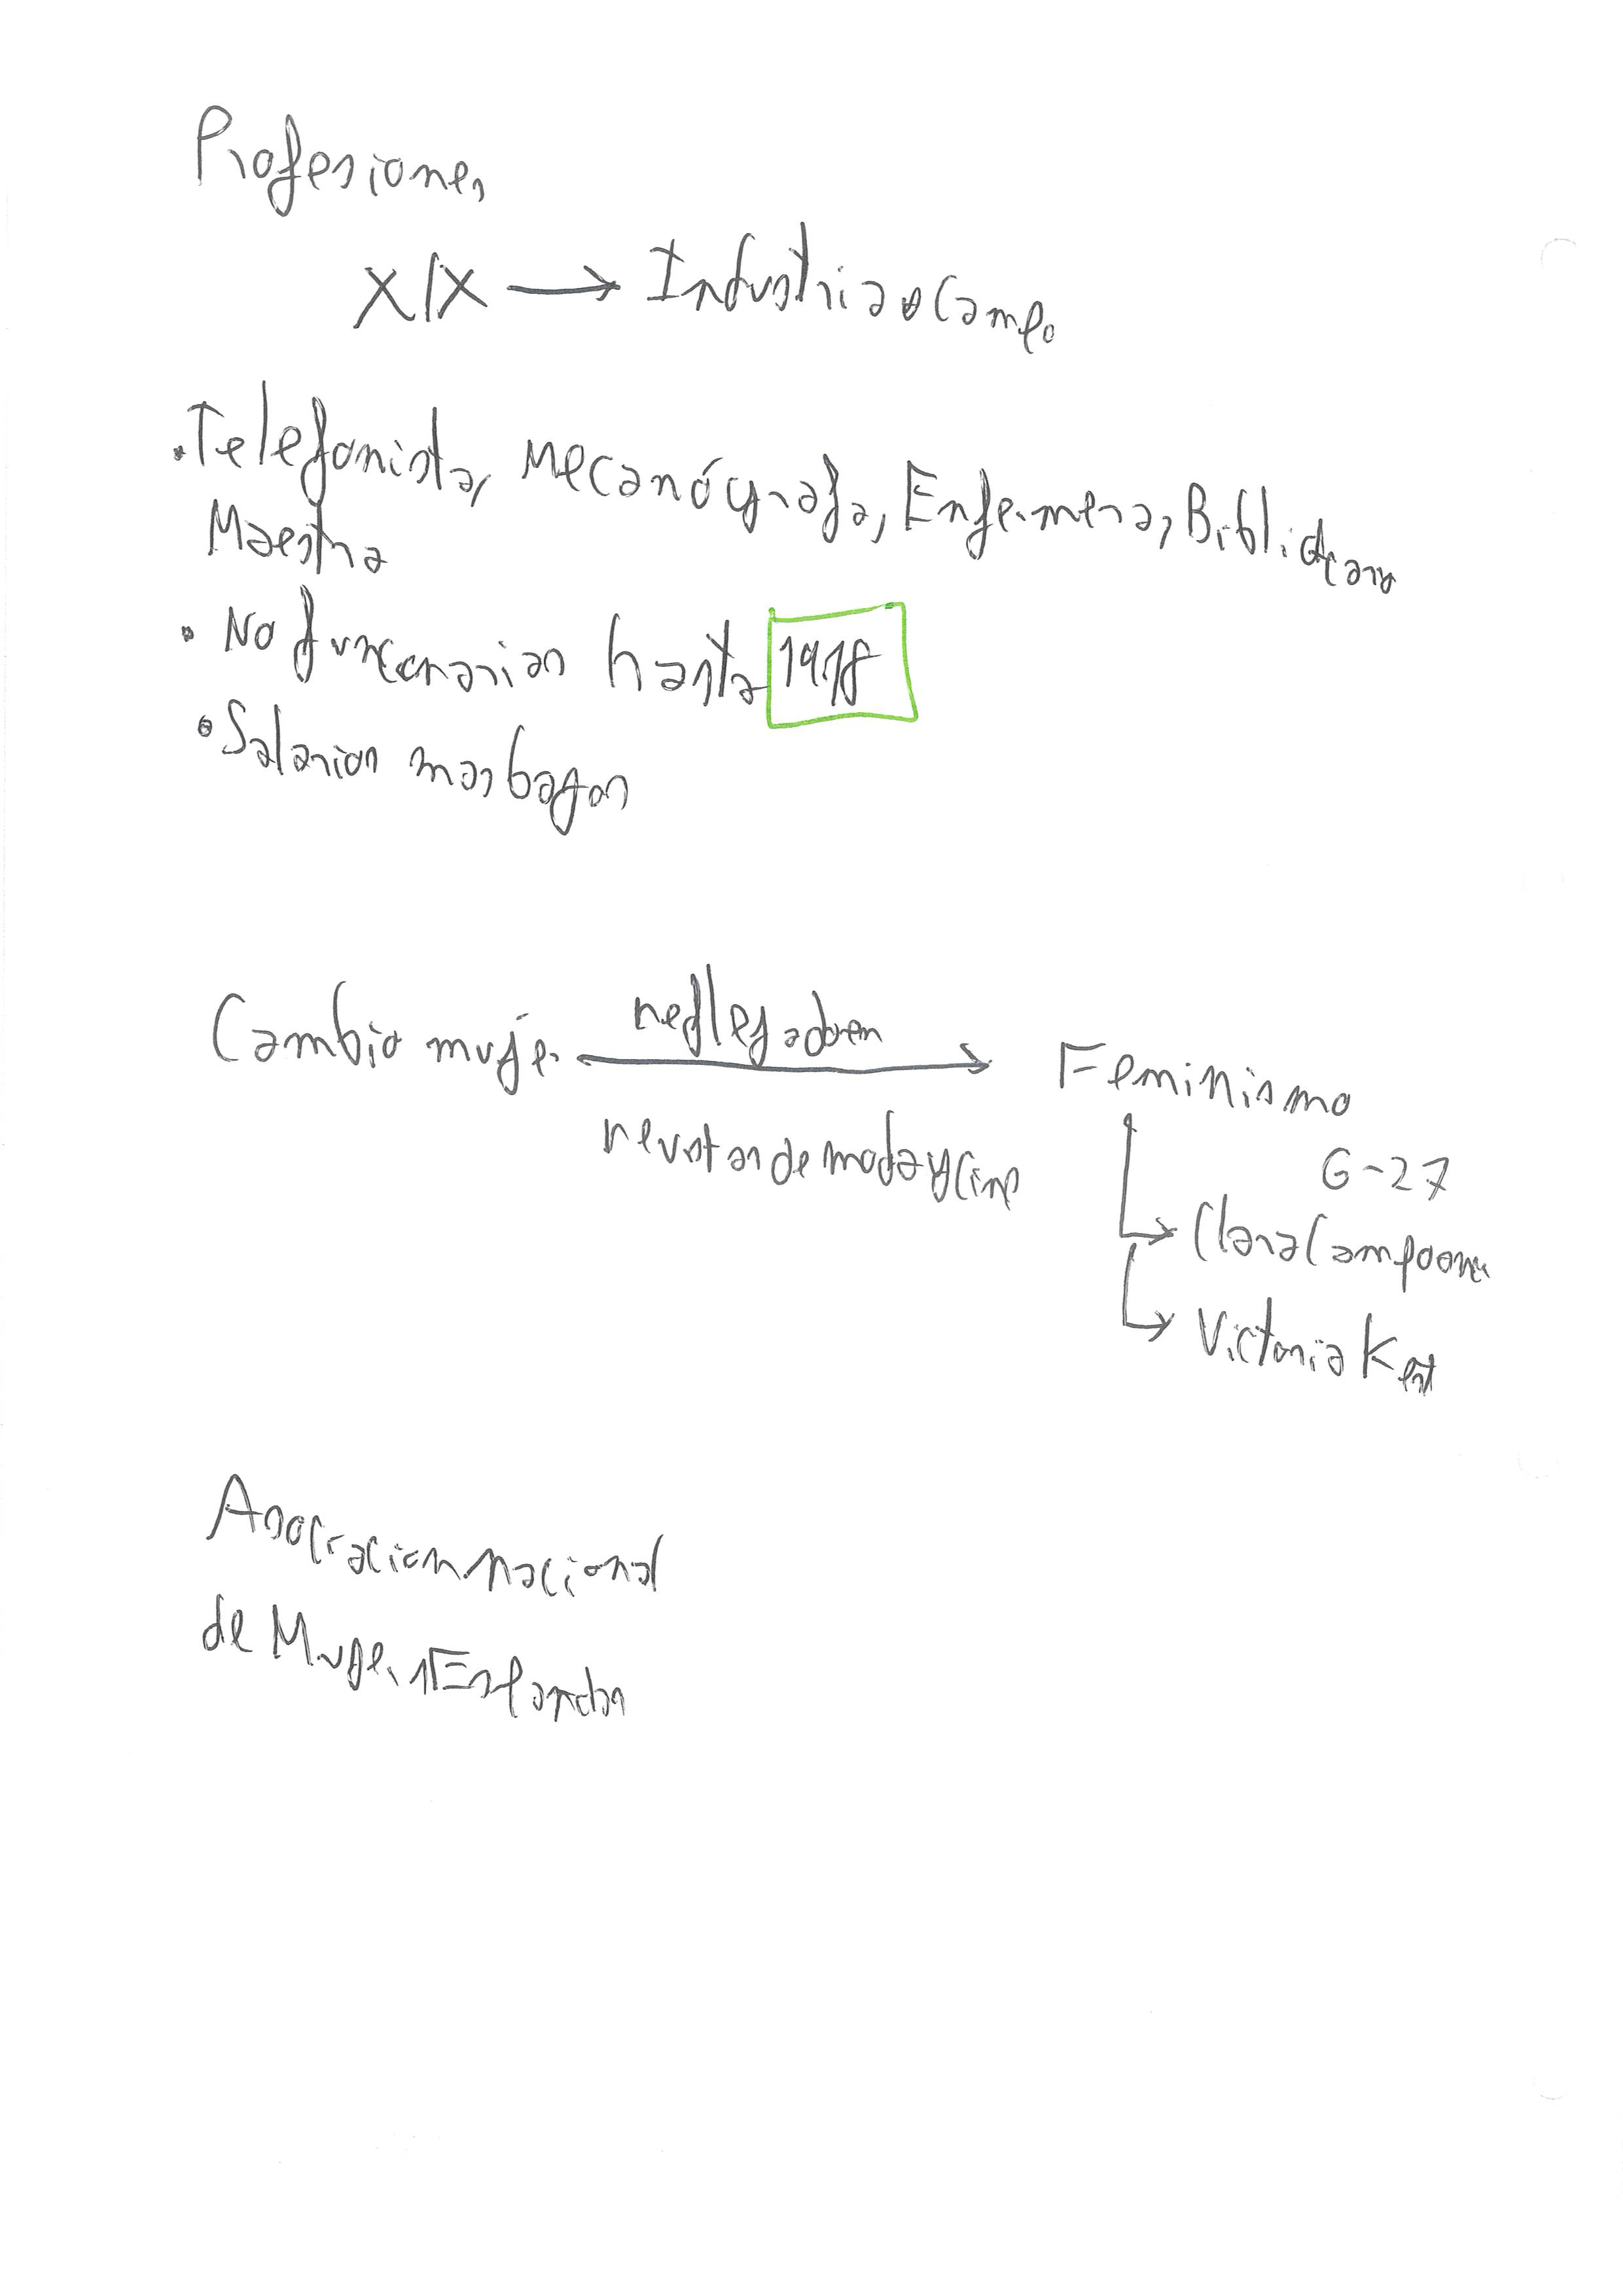 Profesiones
XIX → Industria o Campo
• Telefonista, Mecanógrafa, Enfermera, Bibliotecaria
Maestra
• No funcionarias hasta 1918
• Salarios mas bajos
Cambio mujer reflejado en → Feminismo
revistas de moda y cine
G-27
↳ Clara Campoamor
↳ Victoria Kent
Asociacion nacional
de Mujeres Españolas